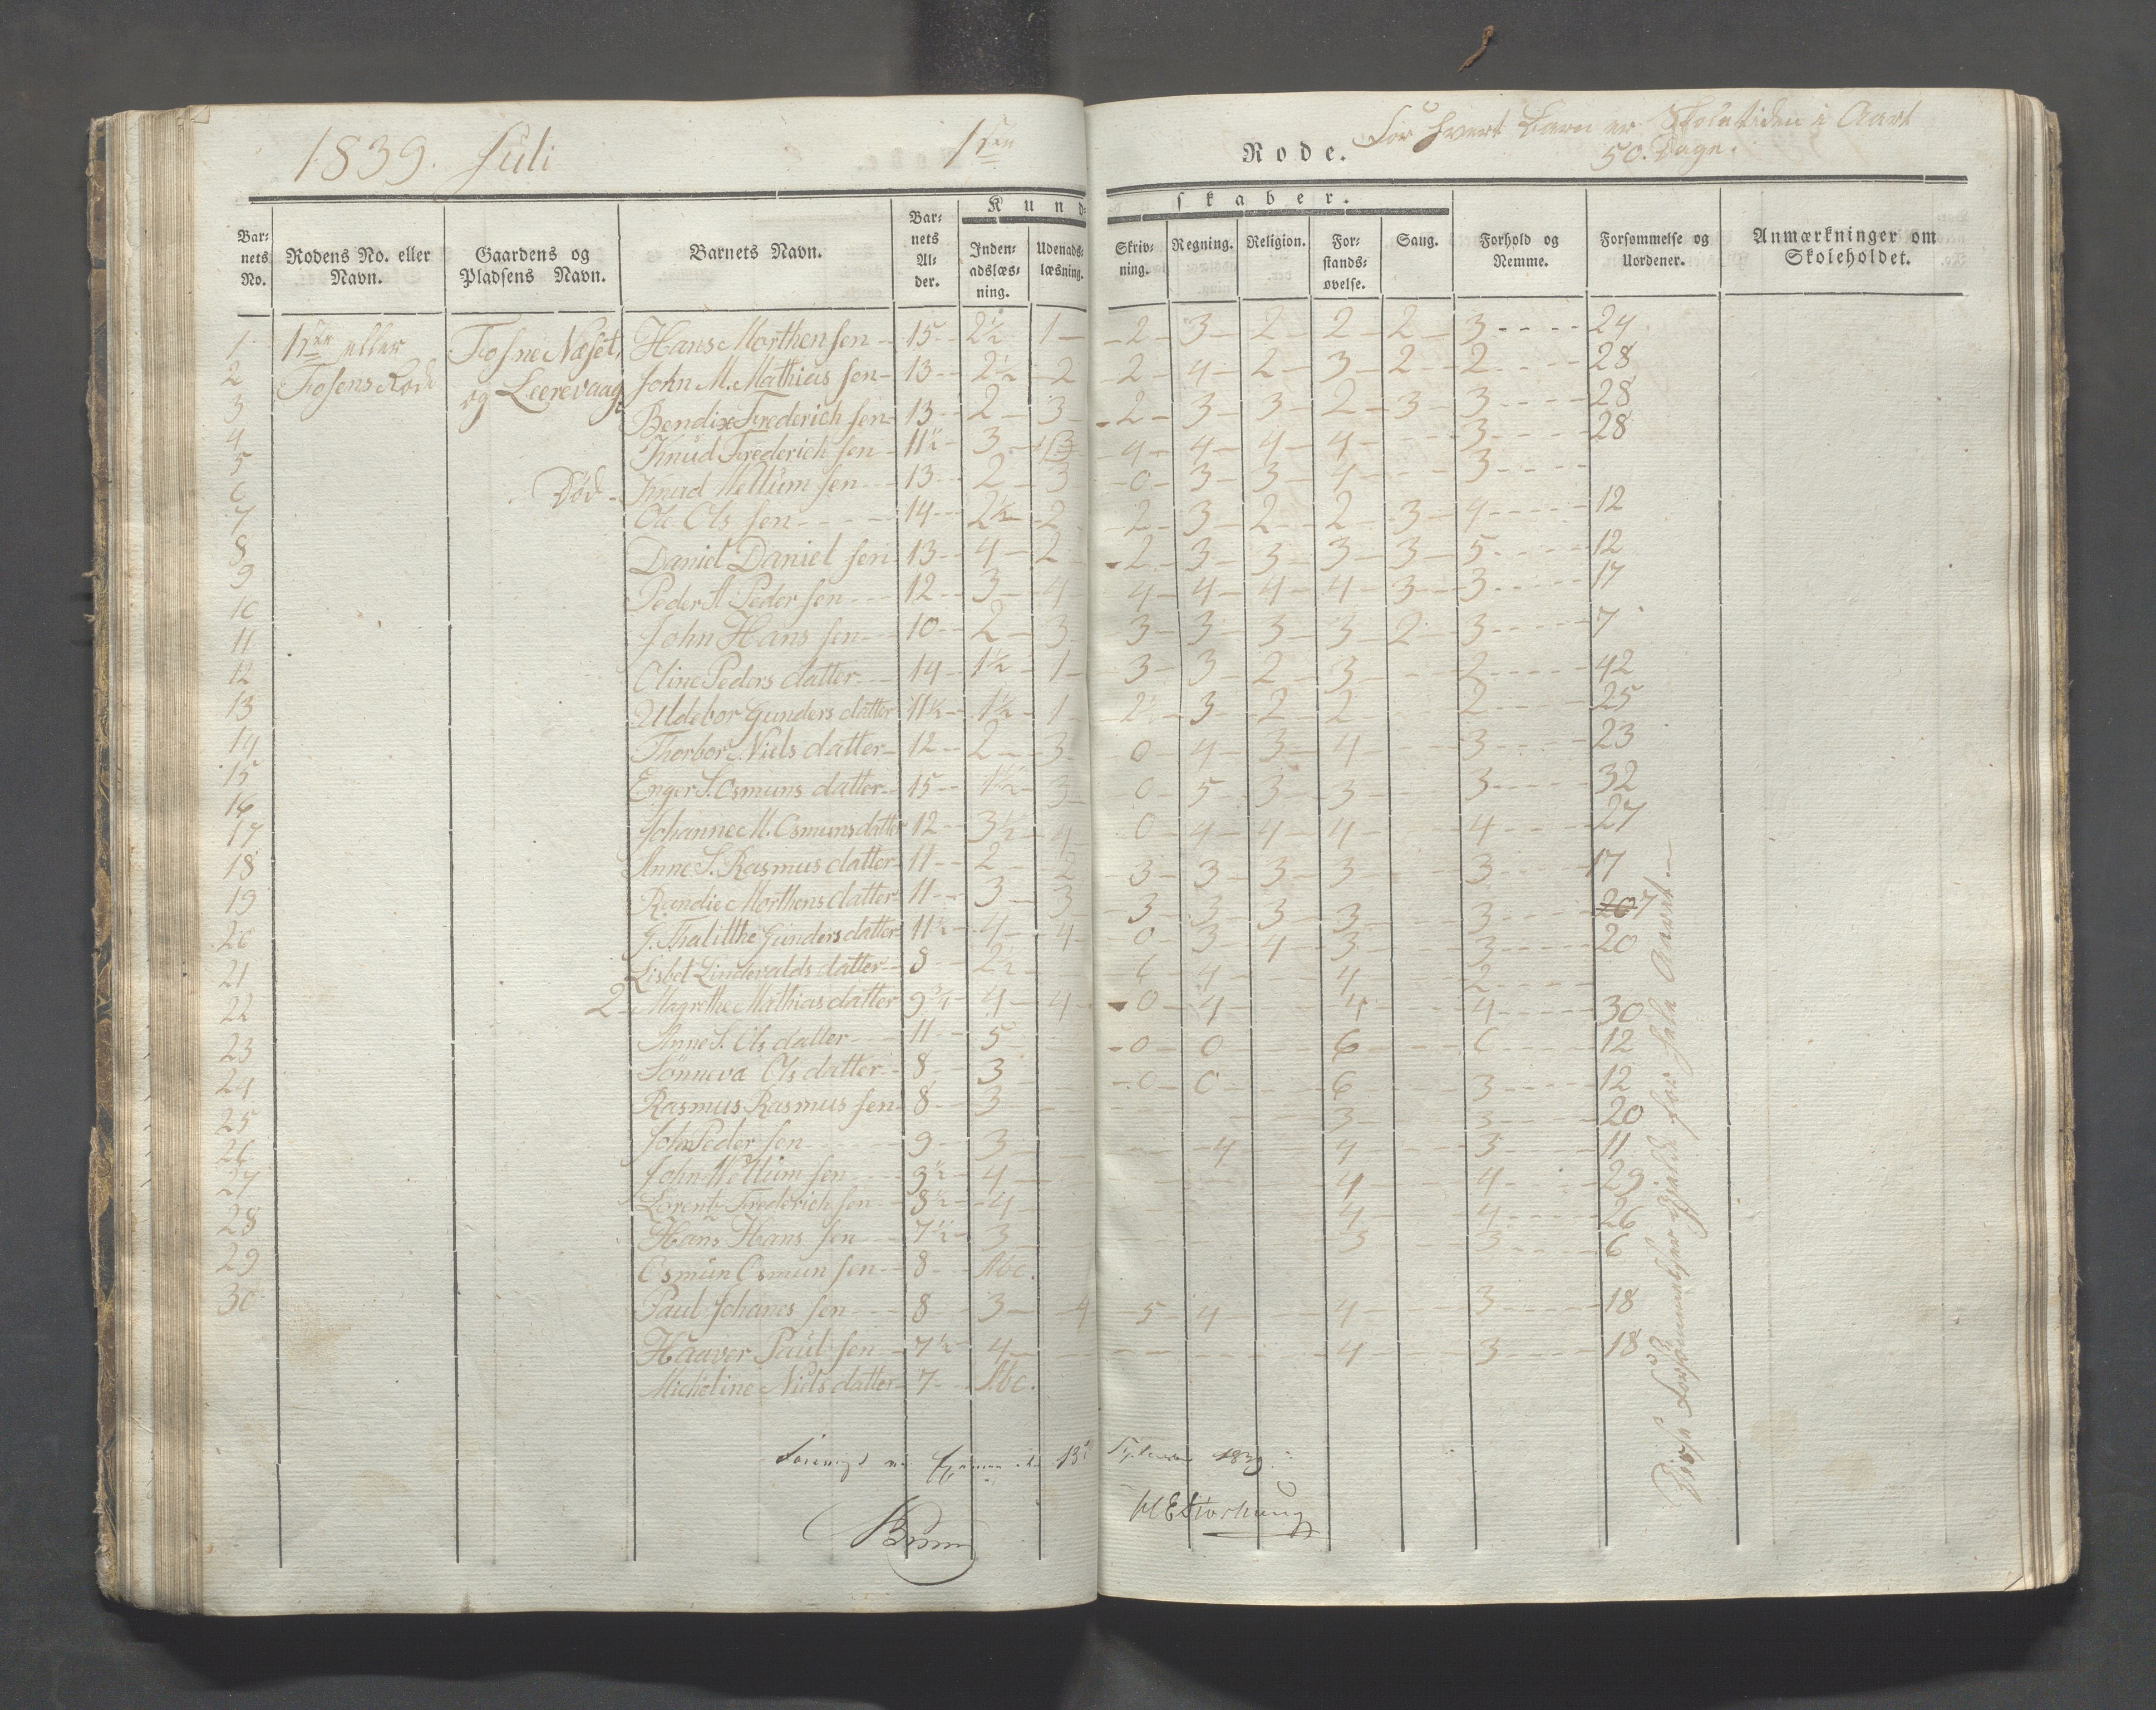 1839. Juli 1ste Rode. For hvert Barn er Skoletiden i Aaret
50. Dage.
Kundskaber.
Barnets No. Rodens No. eller Navn. Gaardens og Pladsens Navn. Barnets Navn. Barnets Alder. Indenadslæsning. Udenadslæsning. Skrivning. Regning. Religion. Forstandsøvelse. Sang. Forhold og Nemme. Forsømmelse og Uordener. Anmærkninger om Skoleholdet.
1 1ste eller Fosne Næset, Hans Morthensen 15 2½ 1 2 3 2 2 2 3 24
2 Fosens Rode og Leerevaag John M. Mathias sen 13 2½ 2 2 4 2 3 2 2 28
3 Bendix Frederich sen 13 2 3 2 3 3 2 3 3 28
4 Knud Frederich sen 11½ 3 4 4 4 4 3 28
5 Død Knud Mellum sen 13 2 3 0 3 3 4 3
6 Ole Ols sen 14 2½ 2 2 3 2 2 3 4 12
7 Daniel Daniel sen 13 4 2 2 3 3 3 3 5 12
8 Peder A. Peder sen 12 3 4 4 4 4 4 3 3 17
9 John Hans sen 10 2 3 3 3 3 3 2 3 7
10 Oline Peders datter 14 1½ 1 3 3 2 3 2 42
11 Aldebor Gunders datter 11½ 1½ 1 2½ 3 2 2 2 25
12 Thorbor Niels datter 12 2 3 0 4 3 4 3 23
13 Enger S. Osmuns datter 15 1½ 3 0 5 3 3 3 32
14 Johanne M. Osmuns datter 12 3½ 4 0 4 4 4 4 27
15 Anne S. Rasmus datter 11 2 2 3 3 3 3 3 17
16 Randie Morthens datter 11 3 3 3 3 3 3 3 20 7
17 G. Thalitthe Gunders datter 11½ 4 4 0 3 4 3 3 20
18 Lisbet Lindevalds datter 8 2½ 0 4 4 2
19 2 Magrethe Mathias datter 9¾ 4 4 0 4 4 4 30
20 Anne S. Ols datter 11 5 0 0 6 6 12
21 Sönneva Ols datter 8 3 0 0 6 3 12
22 Rasmus Rasmus sen 8 3 3 3 20
23 John Peder sen 9 3 4 4 3 11
24 John Mellum sen 9½ 4 4 4 29
25 Lorentz Frederich sen 8½ 4 4 4 26
26 Hans Hans sen 7½ 3 3 3 6
27 Osmun Osmun sen 8 Abc.
28 Paul Johanes sen 8 3 4 5 4 4 3 18
29 Haaver Paul sen 7½ 4 4 3 18
30 Micheline Niels datter 7 Abc.
Disse Forsømmelser gjælde for hele Aaret
Foreviist ved Examen den 13de September 1839.
Bruun